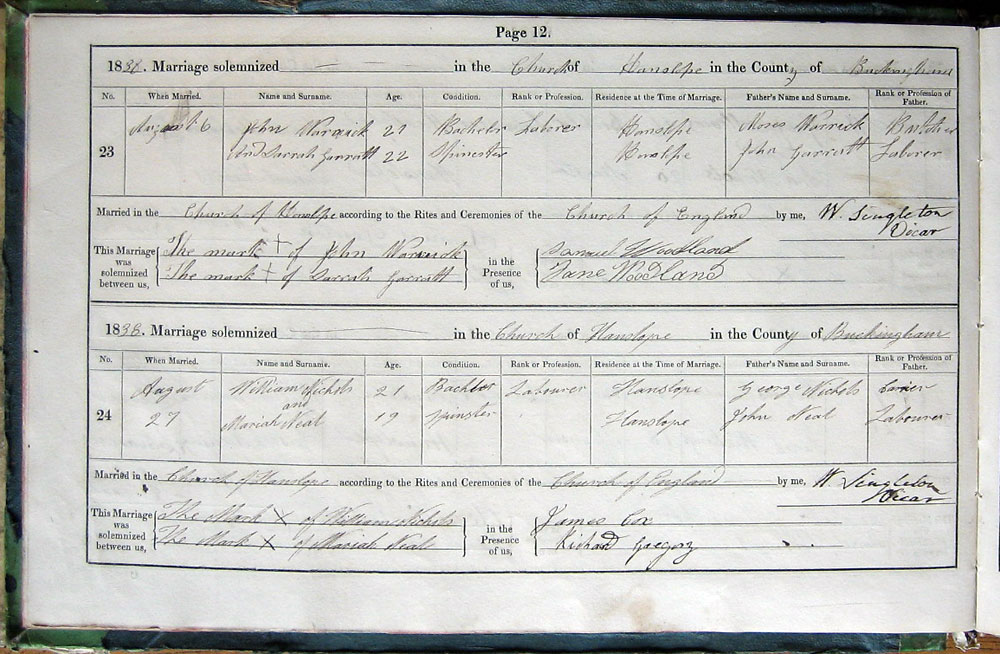 Page 12.
1838. Marriage solemnized in the Church of Hanslpe in the County of Buckingham
No. When Married. Name and Surname. Age. Condition. Rank or Profession. Residence at the Time of Marriage. Father's Name and Surname. Rank or Profession of Father.
23 August 6 John Warwick 21 Bachelr Laborer Hanslpe Moses Warwick Butcher
And Sarrah Garratt 22 Spinester Hanslpe John Garratt Laborer
Married in the Church of Hanslpe according to the Rites and Ceremonies of the Church of England by me, W. Singleton Vicar
This Marriage was solemnized between us,
The mark + of John Warwick
The mark + of Sarrah Garratt
in the Presence of us,
Samuel Woodland
Jane WooDLanD
1838. Marriage solemnized in the Church of Hanslope in the County of Buckingham
No. When Married. Name and Surname. Age. Condition. Rank or Profession. Residence at the Time of Marriage. Father's Name and Surname. Rank or Profession of Father.
24 August 27 William Nichols 21 Labourer Hanslope George Nichols
and
Mariah Neal 19 Spinster Hanslope John Neal Labourer
Married in the Church of Hanslope according to the Rites and Ceremonies of the Church of England by me, W Singleton Vicar
This Marriage was solemnized between us,
The Mark X of William Nichols
The Mark X of Mariah Neal
in the Presence of us,
James Cox
Richard Gregory